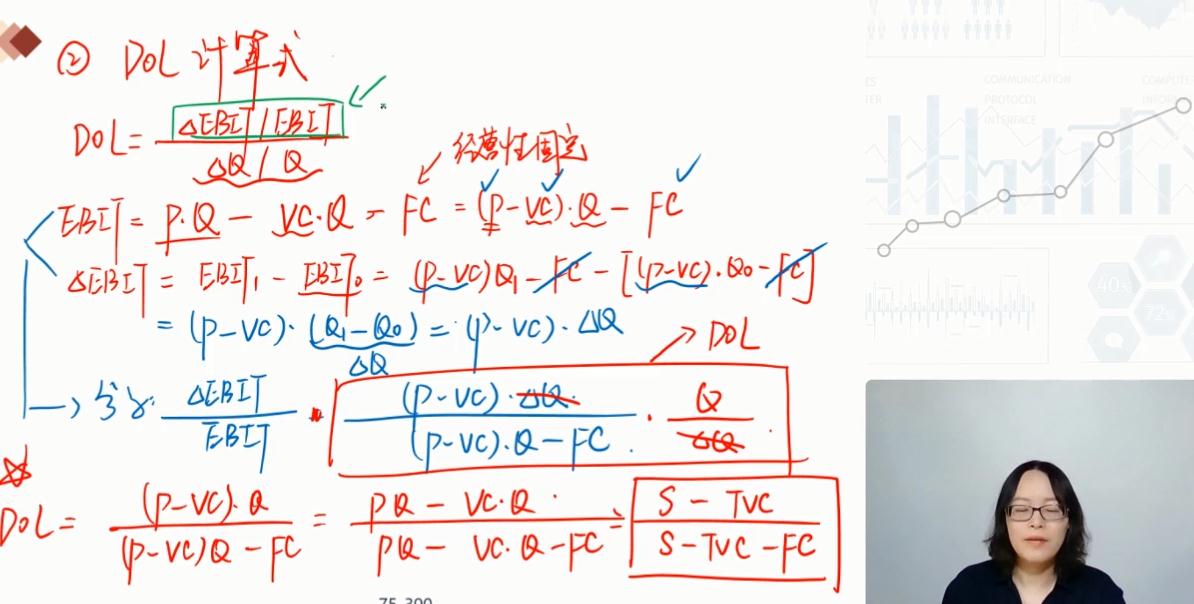 ② DOL 计算式
DOL = ΔEBIT / EBIT
ΔQ / Q
经营性固定
EBIT = P·Q - VC·Q - FC = (P-VC)·Q - FC
ΔEBIT = EBIT₁ - EBIT₀ = (P-VC)Q₁ - FC - [(P-VC)·Q₀ - FC]
= (P-VC)·(Q₁-Q₀) = (P-VC)·ΔQ
ΔQ
DOL
ΔEBIT (P-VC)·ΔQ · Q
EBIT (P-VC)·Q - FC ΔQ
DOL = (P-VC)·Q = PQ - VC·Q = S - TVC
(P-VC)Q - FC PQ - VC·Q - FC S - TVC - FC
COMMUNICATION
PROTOCOL
INTERFACE
COMPUTE
40%
72%